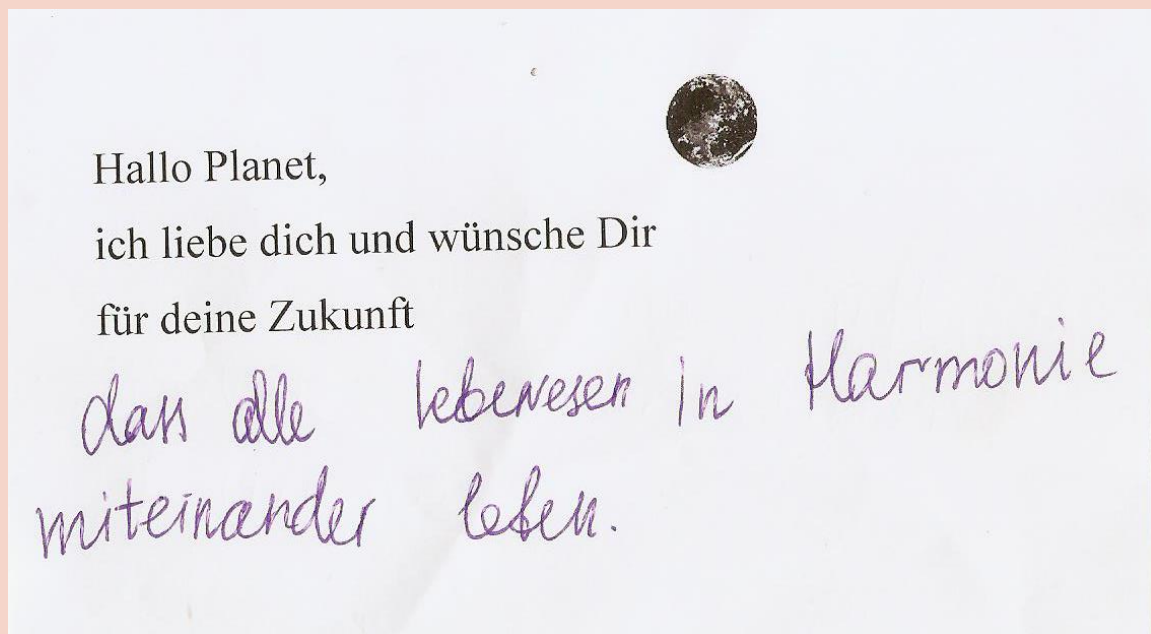 Hallo Planet,
ich liebe dich und wünsche Dir
für deine Zukunft
dass alle lebewesen in Harmonie
miteinander leben.